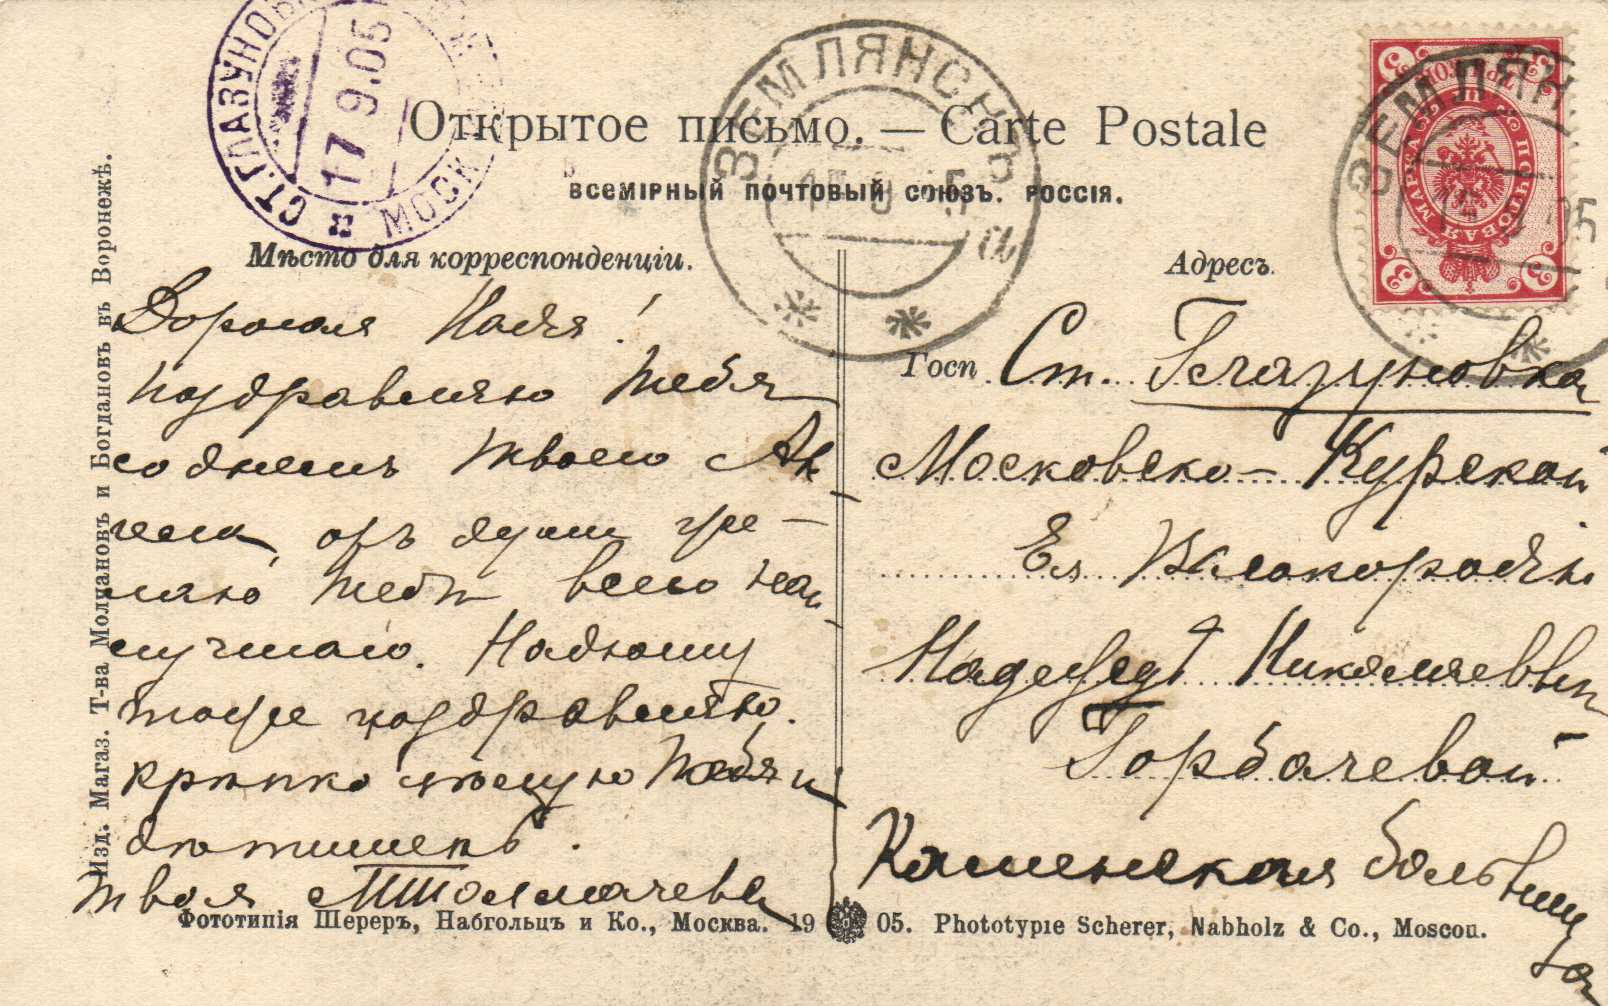 СТ. ГЛАЗУНОВК
МОСК
17 9.05
ЗЕМЛЯНСКЪ
ЗЕМЛЯН
05
Открытое письмо. — Carte Postale
ВСЕМІРНЫЙ ПОЧТОВЫЙ СОЮЗЪ. РОССІЯ.
Мѣсто для корреспонденціи.
Адресъ.
Дорогая Надя!
поздравляю тебя
со днемъ твоего Ан
гела, отъ души же-
лаю тебѣ всего наи
лучшаго. Надюшу
тоже поздравляю.
крѣпко цѣлую тебя и
дѣтишекъ.
твоя МТолмачева
Госп. Ст. Глазуновка
Московско-Курской
Ея Благородію
Надеждѣ Николаевнѣ
Горбачевой
Каменская больница
Изд. Магаз. Т-ва Молчановъ и Богдановъ въ Воронежѣ.
Фототипія Шереръ, Набгольцъ и Ко., Москва. 1905. Phototypie Scherer, Nabholz & Co., Moscou.